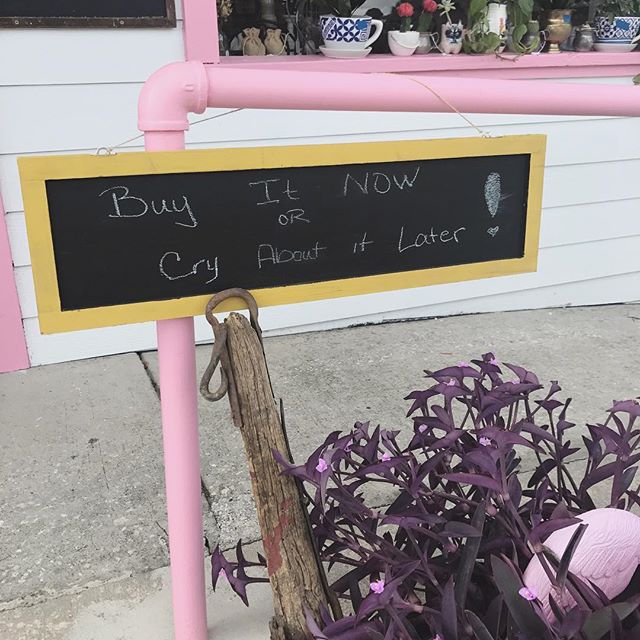 Buy It NOW !
OR
Cry About it Later